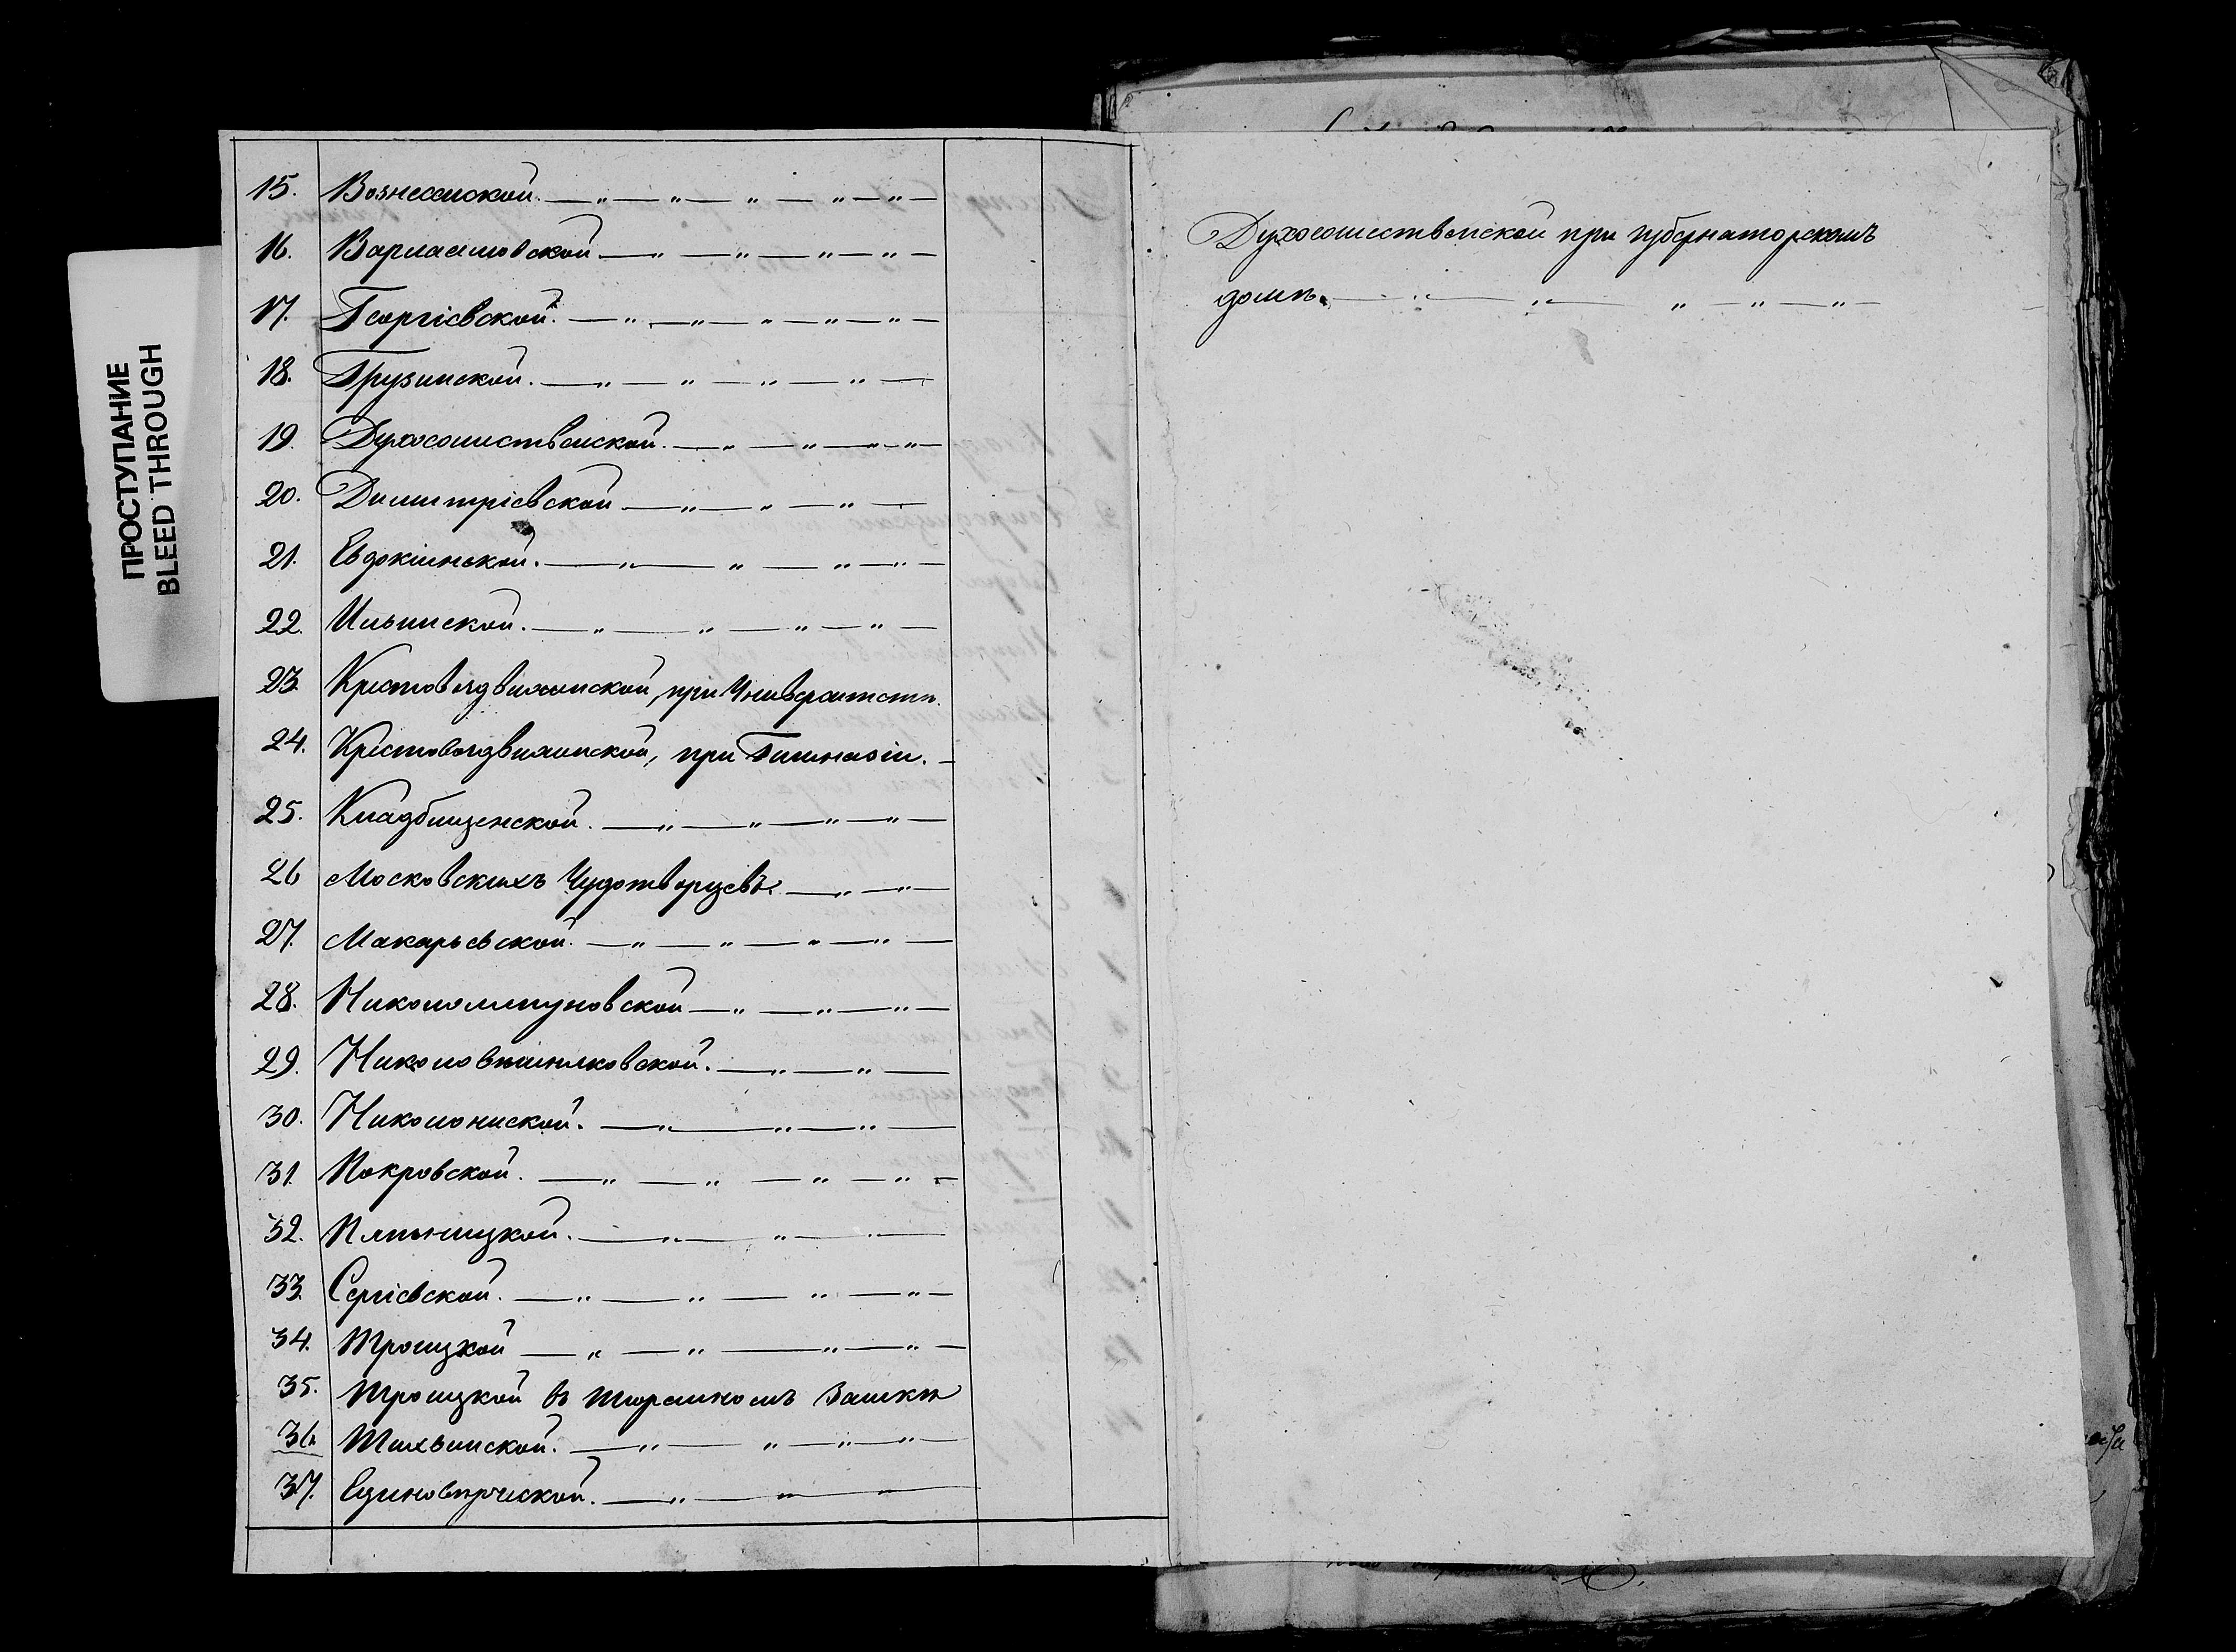 ПРОСТУПАНИЕ
BLEED THROUGH
15. Вознесенской. — „ — „ — „ — „ — „ —
16. Варлаамовской — „ — „ — „ — „ —
17. Георгіевской. — „ — „ — „ — „ — „ —
18. Грузинской. — „ — „ — „ — „ —
19. Духосошественской. — „ — „ — „ — „ —
20. Димитріевской — „ — „ — „ —
21. Евдокіинской. — „ — „ — „ — „ —
22. Ильинской. — „ — „ — „ — „ —
23. Крестовоздвиженской, при Университетѣ.
24. Крестовоздвиженской, при Гимназіи. —
25. Кладбищенской. — „ — „ — „ — „ —
26 Московскихъ Чудотворцевъ. — „ — „ —
27. Макарьевской. — „ — „ — „ — „ —
28. Никололяпуновской — „ — „ — „ —
29. Николовѣшняковской. — „ — „ —
30. Николонисской. — „ — „ — „ —
31. Покровской. — „ — „ — „ — „ —
32. Пятницкой. — „ — „ — „ —
33. Сергіевской. — „ — „ — „ — „ —
34. Троицкой — „ — „ — „ — „ —
35. Троицкой въ Тюремномъ Замкѣ
36. Тихвинской. — „ — „ — „ — „ —
37. Единовѣрческой. — „ — „ — „ —
Духосошественской при губернаторскомъ
домѣ. — „ — „ — „ — „ — „ —